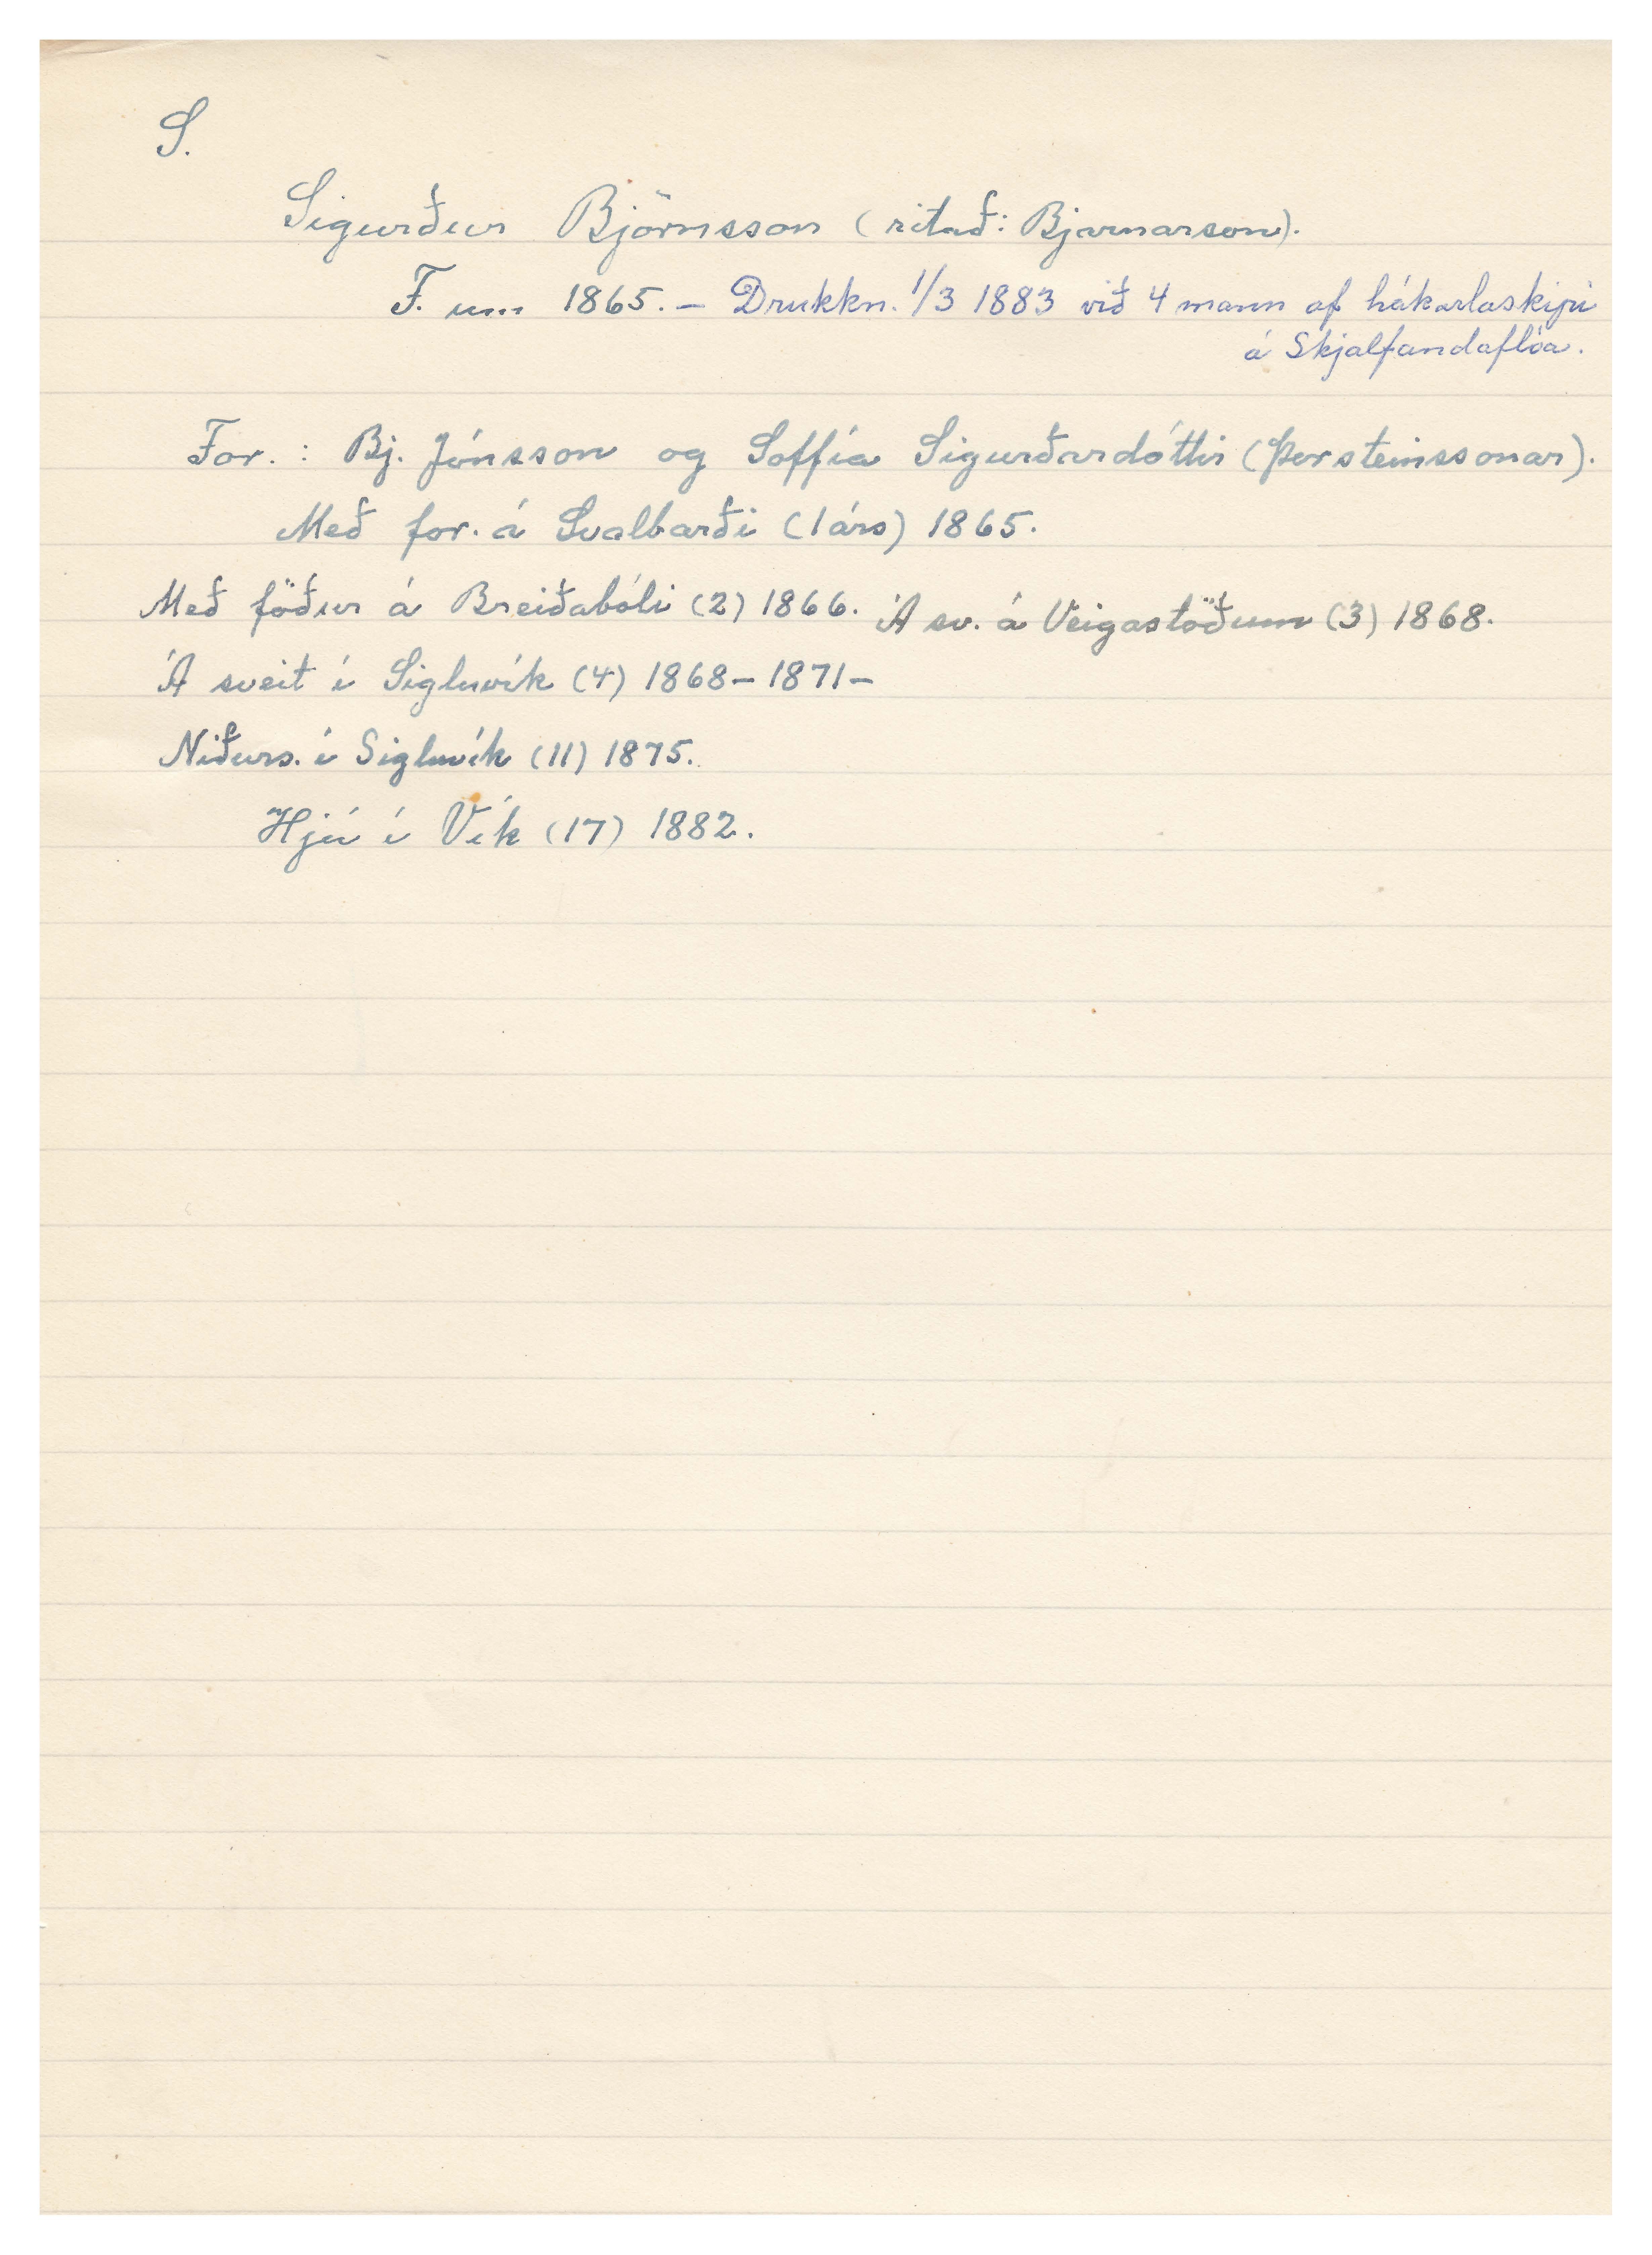 S.
Sigurður Björnsson (ritað: Bjarnarson).
F. um 1865. – Drukkn. 1/3 1883 við 4 mann af hákarlaskipi
á Skjalfandaflóa.
For. : Bj. Jónsson og Soffía Sigurðardóttir (Þorsteinssonar).
Með for. á Svalbarði (1 árs) 1865.
Með föður á Breiðabóli (2) 1866. Á sv. á Veigastöðum (3) 1868.
Á sveit í Sigluvík (4) 1868 – 1871 –
Niðurs. í Sigluvík (11) 1875.
Hjú í Vík (17) 1882.